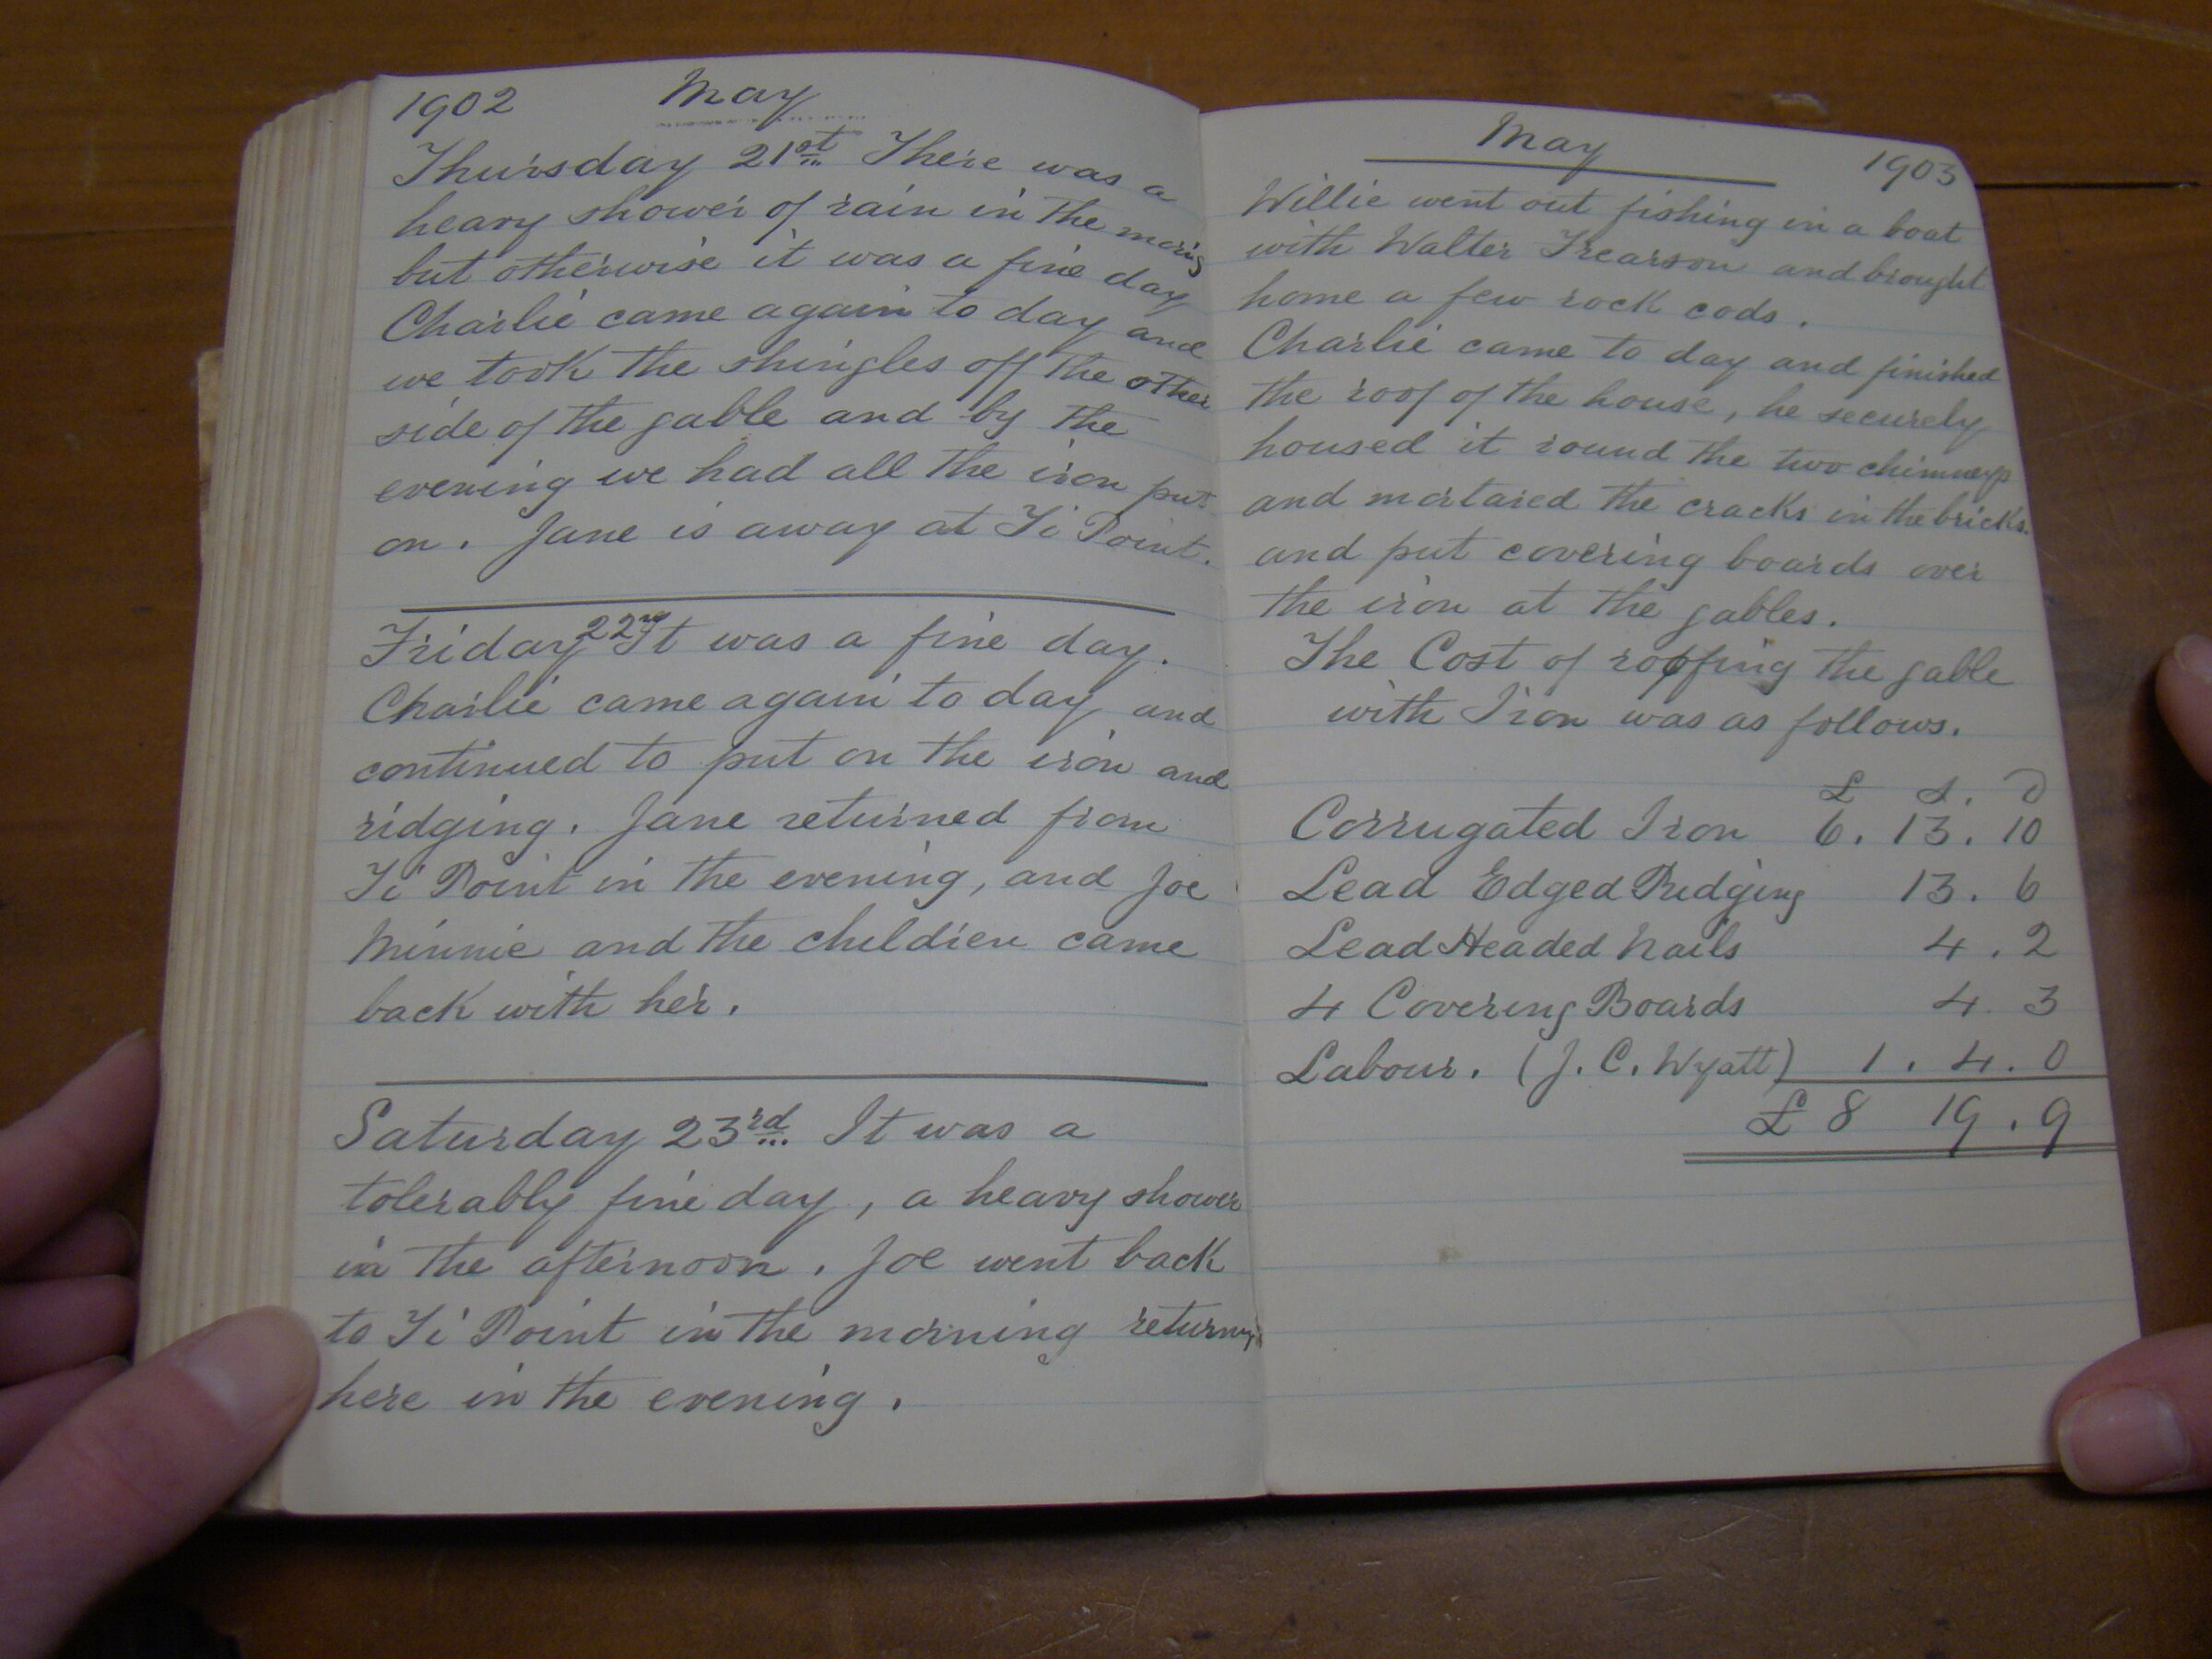 1902 May
Thursday 21st There was a
heavy shower of rain in the morng
but otherwise it was a fine day
Charlie came again to day and
we took the shingles off the other
side of the gable and by the
evening we had all the iron put
on. Jane is away at Ti Point.
Friday 22nd It was a fine day.
Charlie came again to day and
continued to put on the iron and
ridging. Jane returned from
Ti Point in the evening, and Joe
Minnie and the children came
back with her.
Saturday 23rd It was a
tolerably fine day, a heavy shower
in the afternoon. Joe went back
to Ti Point in the morning returng
here in the evening.
May 1903
Willie went out fishing in a boat
with Walter Frearson and brought
home a few rock cods.
Charlie came to day and finished
the roof of the house, he securely
housed it round the two chimneys
and mortared the cracks in the bricks.
and put covering boards over
the iron at the gables.
The Cost of roofing the gable
with Iron was as follows.
£ s. D
Corrugated Iron 6. 13. 10
Lead Edged Ridging 13. 6
Lead Headed Nails 4. 2
4 Covering Boards 4. 3
Labour. (J. C. Wyatt) 1. 4. 0
£ 8 19. 9